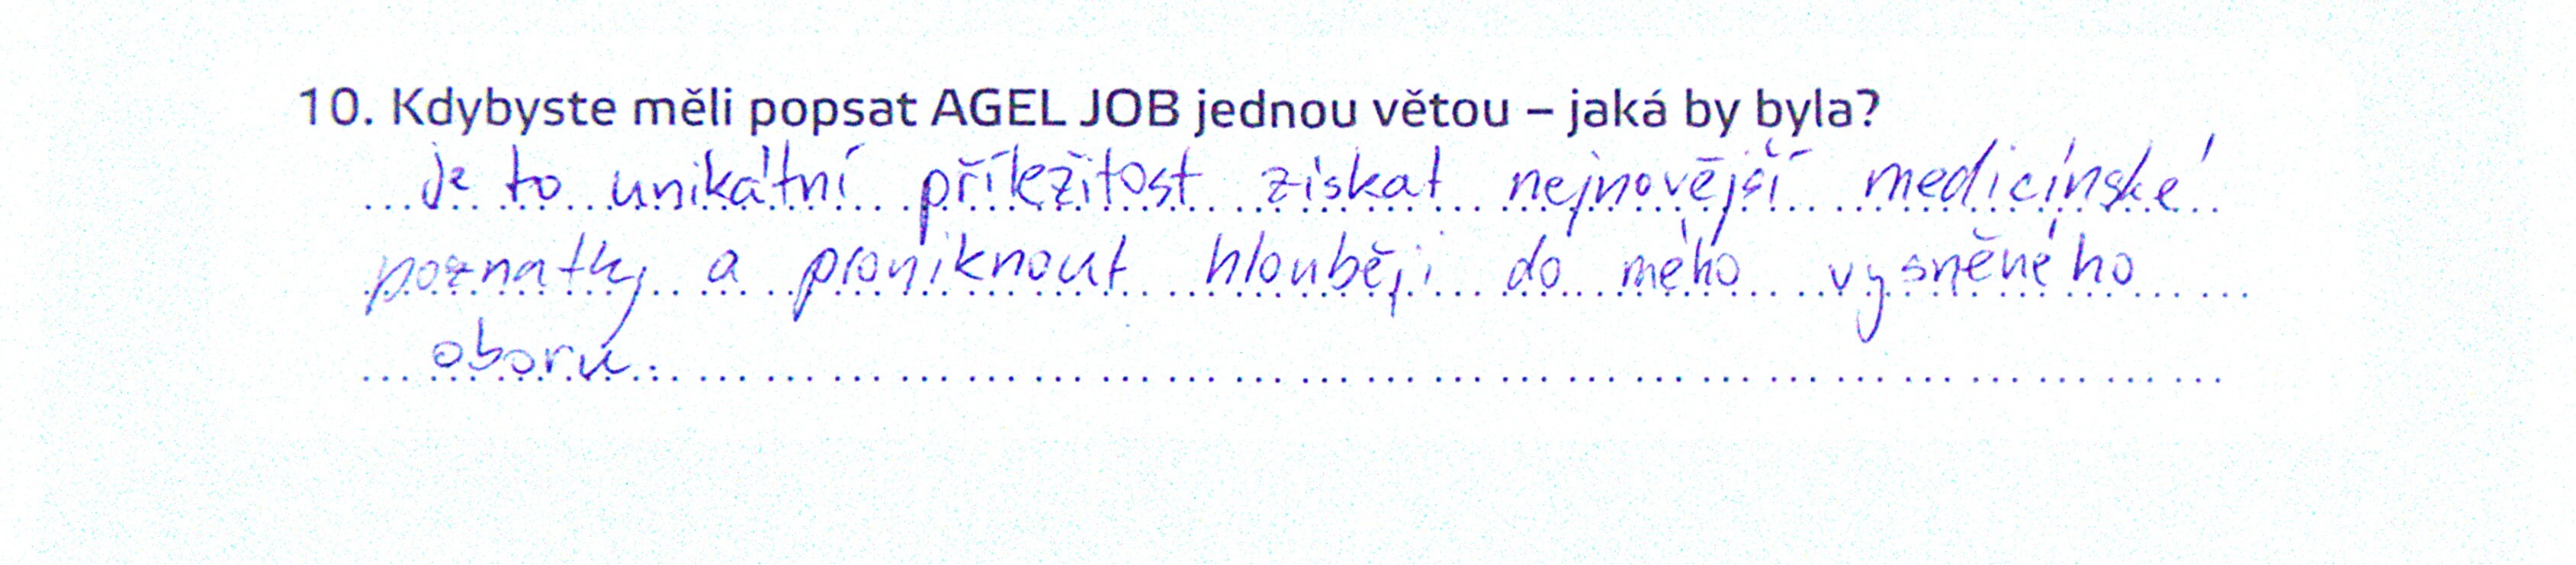 10. Kdybyste měli popsat AGEL JOB jednou větou – jaká by byla?
Je to unikátní příležitost získat nejnovější medicínské
poznatky a proniknout hlouběji do mého vysněného
oboru.